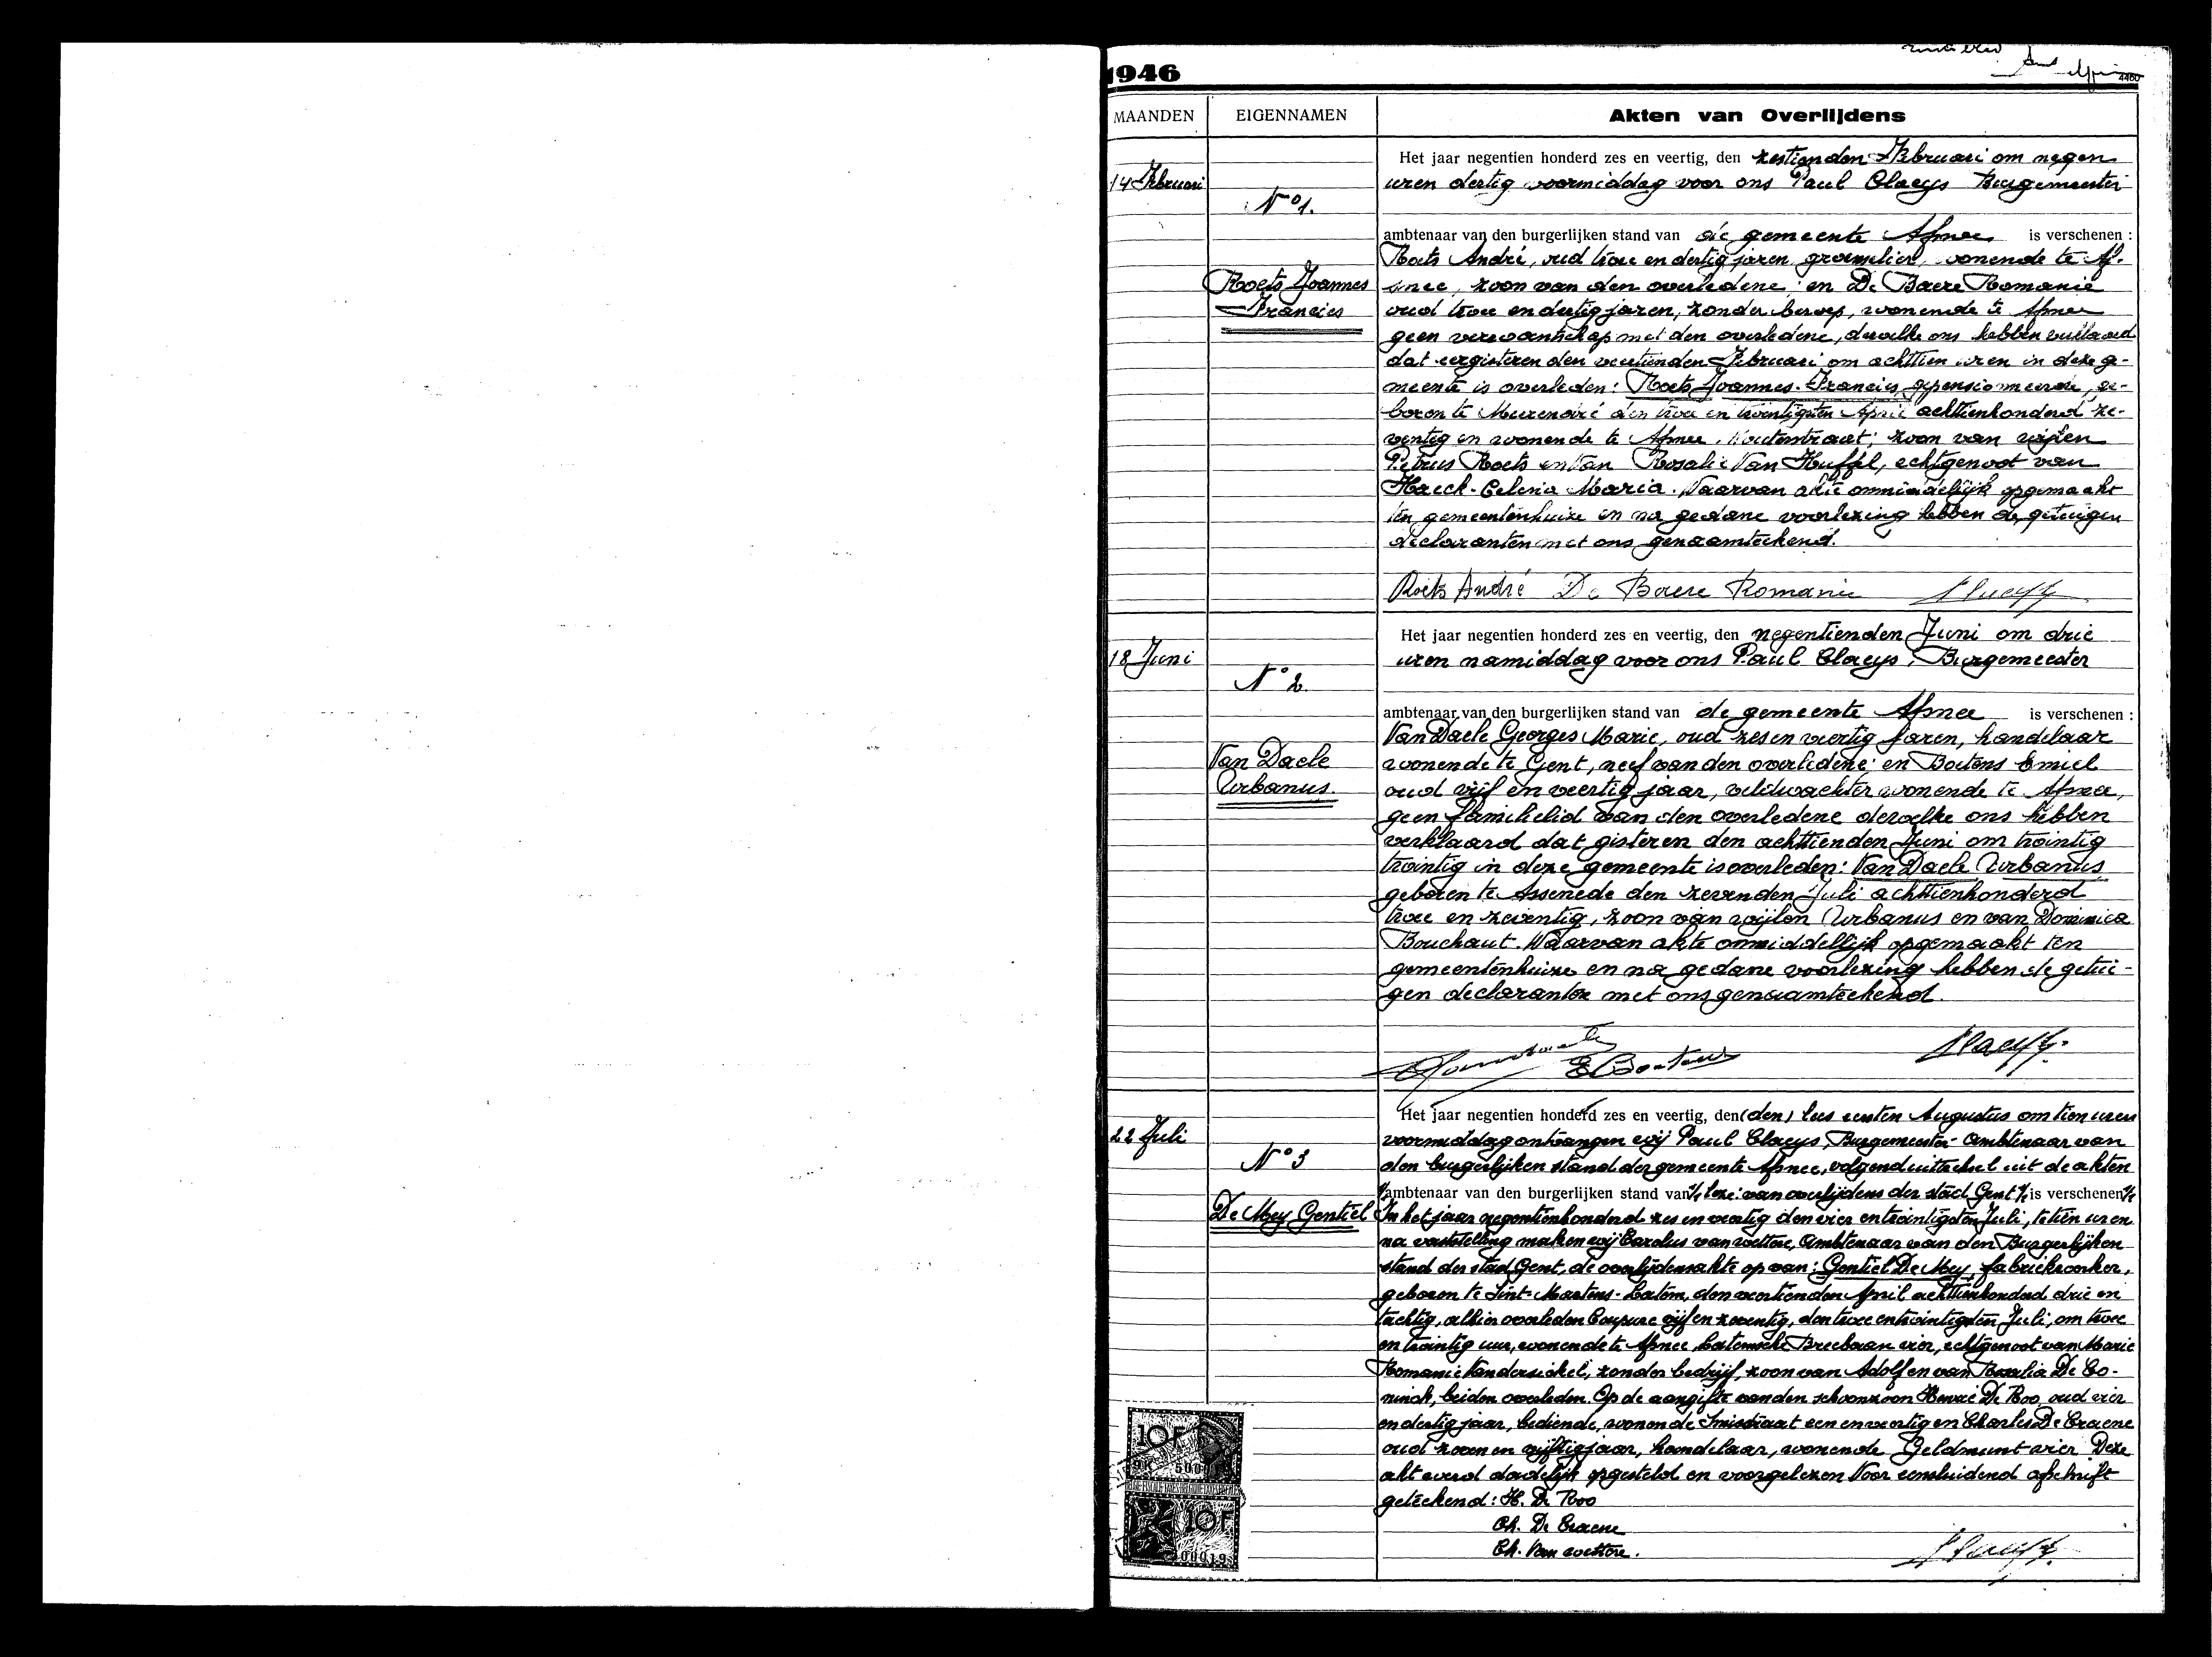 1946
4460
MAANDEN EIGENNAMEN Akten van Overlijdens
14 Februari
N° 1.
Roets Joannes
Francies
Het jaar negentien honderd zes en veertig, den zestienden Februari om negen
uren dertig voormiddag voor ons Paul Claeys Burgemeester
ambtenaar van den burgerlijken stand van de gemeente Afsnee is verschenen :
Roets André, oud twee en dertig jaren, wonende te Af-
snee, zoon van den overledene; en De Baere Romanie
oud twee en dertig jaren, zonder beroep, wonende te Afsnee
geen verwantschap met den overledene, dewelke ons hebben verklaard
dat eergisteren den veertienden Februari om achttien uren in deze ge-
meente is overleden: Roets Joannes-Francies, gepensionneerde, ge-
boren te den twee en twintigsten April achttienhonderd ze-
ventig en wonende te Afsnee, Kouterstraat; zoon van wijlen
Petrus Roets en van Rosalie Van Huffel, echtgenoot van
Haeck Celena Maria. Waarvan akte onmiddelijk opgemaakt
ten gemeentenhuize en na gedane voorlezing hebben de getuigen
declaranten met ons genaamteekend.
Roets André De Baere Romanie PClaeys
18 Juni
N° 2.
Van Daele
Urbanus.
Het jaar negentien honderd zes en veertig, den negentienden Juni om drie
uren namiddag voor ons Paul Claeys, Burgemeester
ambtenaar van den burgerlijken stand van de gemeente Afsnee is verschenen :
Van Daele Georges Marie, oud zes en veertig jaren, handelaar
wonende te Gent, neef van den overledene; en Boetens Emiel
oud vijf en veertig jaar, veldwachter wonende te Afsnee,
geen familielid van den overledene dewelke ons hebben
verklaard dat gisteren den achttienden Juni om twintig
twintig in deze gemeente is overleden: Van Daele Urbanus
geboren te Assenede den zevenden Juli achttienhonderd
twee en zeventig, zoon van wijlen Urbanus en van Dominica
Bouchaut. Waarvan akte onmiddellijk opgemaakt ten
gemeentenhuize en na gedane voorlezing hebben de getui-
gen declaranten met ons genaamteekend.
PClaeys.
22 Juli
N° 3
De Mey Gentiel
Het jaar negentien honderd zes en veertig, den (den) lees eersten Augustus om tien uren
voormiddag ontvangen wij Paul Claeys, Burgemeester-Ambtenaar van
den burgerlijken stand der gemeente Afsnee, volgend uittreksel uit de akten
ambtenaar van den burgerlijken stand van lees: van overlijdens der stad Gent is verschenen
In het jaar negentienhonderd zes en veertig den vier en twintigsten Juli, te tien uren
na vaststelling maken wij Carolus van wettere, Ambtenaar van den Burgerlijken
stand der stad Gent, de overlijdensakte op van: Gentiel De Mey, fabriekwerker,
geboren te Sint-Martens-Latem, den veertienden April achttienhonderd drie en
tachtig, alhier overleden Coupure vijf en zeventig, den twee en twintigsten Juli, om twee
en twintig uur, wonende te Afsnee, Latemsche Breebaan vier, echtgenoot van Marie
Romanie Vandersickel, zonder bedrijf, zoon van Adolf en van Rosalia De Co-
ninck, beiden overleden. Op de aangifte van den schoonzoon Henri De Roo, oud vier
en dertig jaar, bediende, wonende Smisstraat een en veertig en Charles De Craene
oud zeven en vijftig jaar, handelaar, wonende Geldmunt vier. Deze
akt werd dadelijk opgesteld en voorgelezen Voor eensluidend afschrift
geteekend: H. De Roo
Ch. De Craene
Ch. Van wettere.
PClaeys.
10F
10F